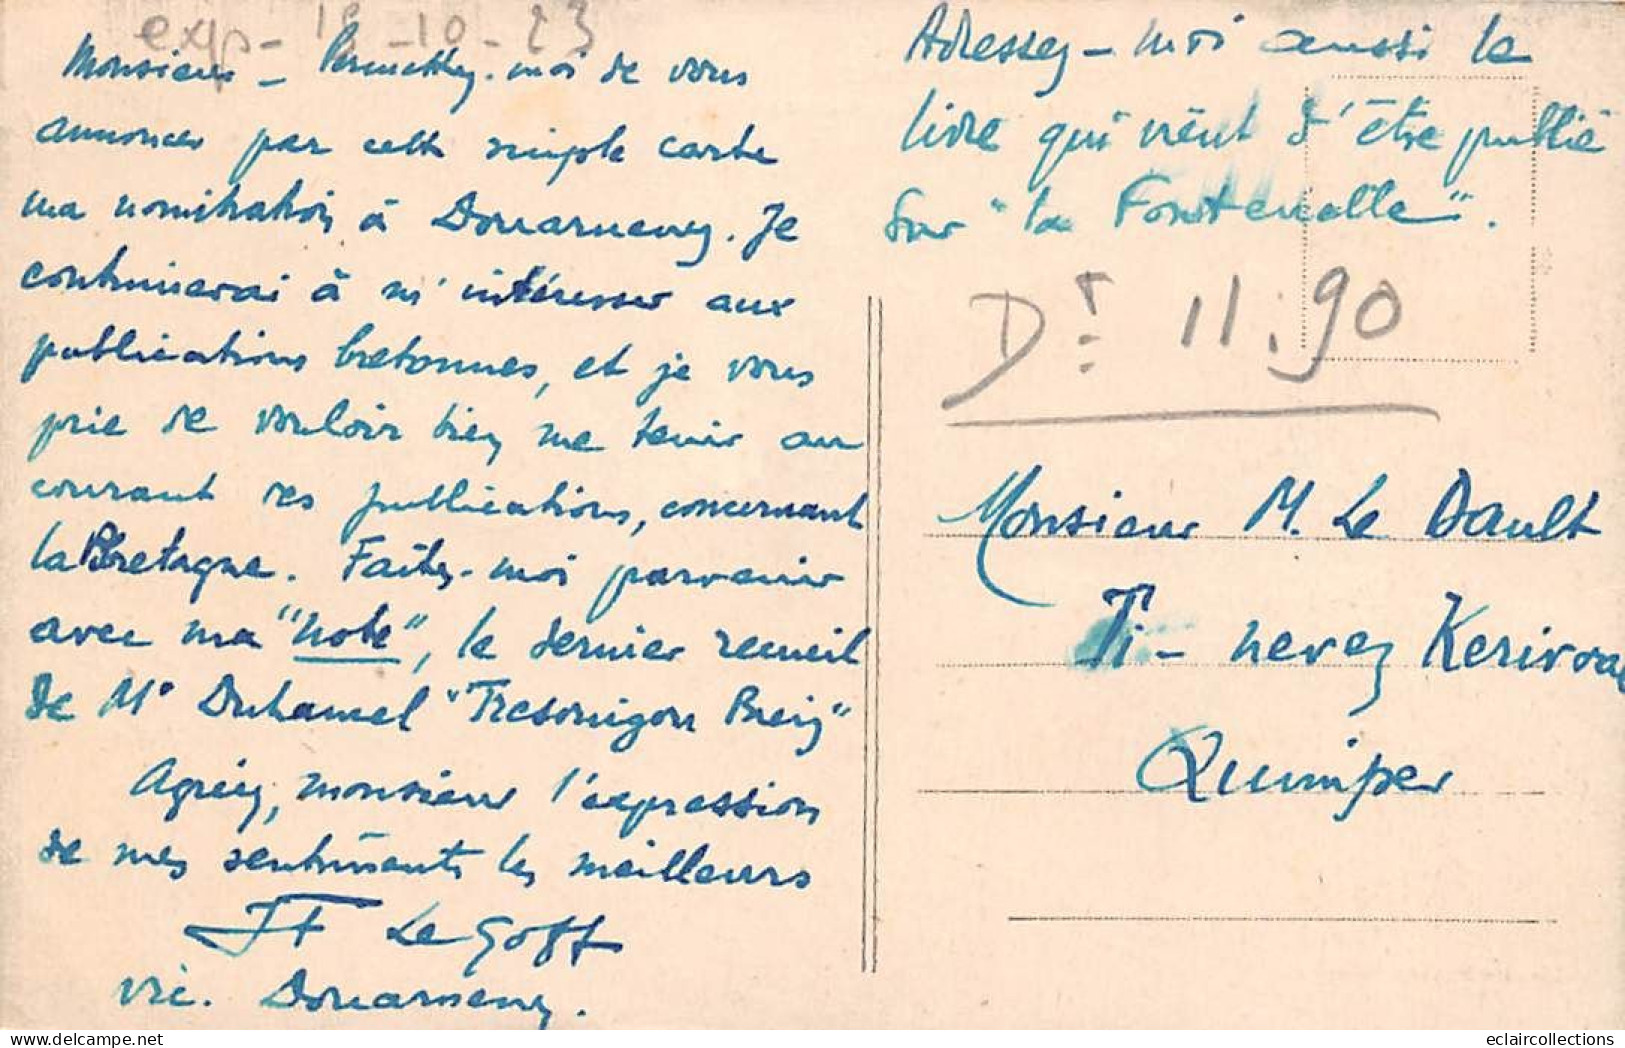 exp - 18 - 10 - 23
Monsieur - Permettez-moi de vous
annoncer par cette simple carte
ma nomination à Douarnenez. Je
continuerai à m'intéresser aux
publications bretonnes, et je vous
prie de vouloir bien me tenir au
courant des publications, concernant
la Bretagne. Faites-moi parvenir
avec ma "note", le dernier recueil
de Mr Duhamel "Tresonigou Breiz"
Agréez, monsieur l'expression
de mes sentiments les meilleurs
Le Goff
vic. Douarnenez.
Adressez-moi aussi le
livre qui vient d'être publié
sur "la Fontenelle".
Dt: 11.90
Monsieur M. Le Dault
Ti-nevez Kerivoal
Quimper
eclaircollections